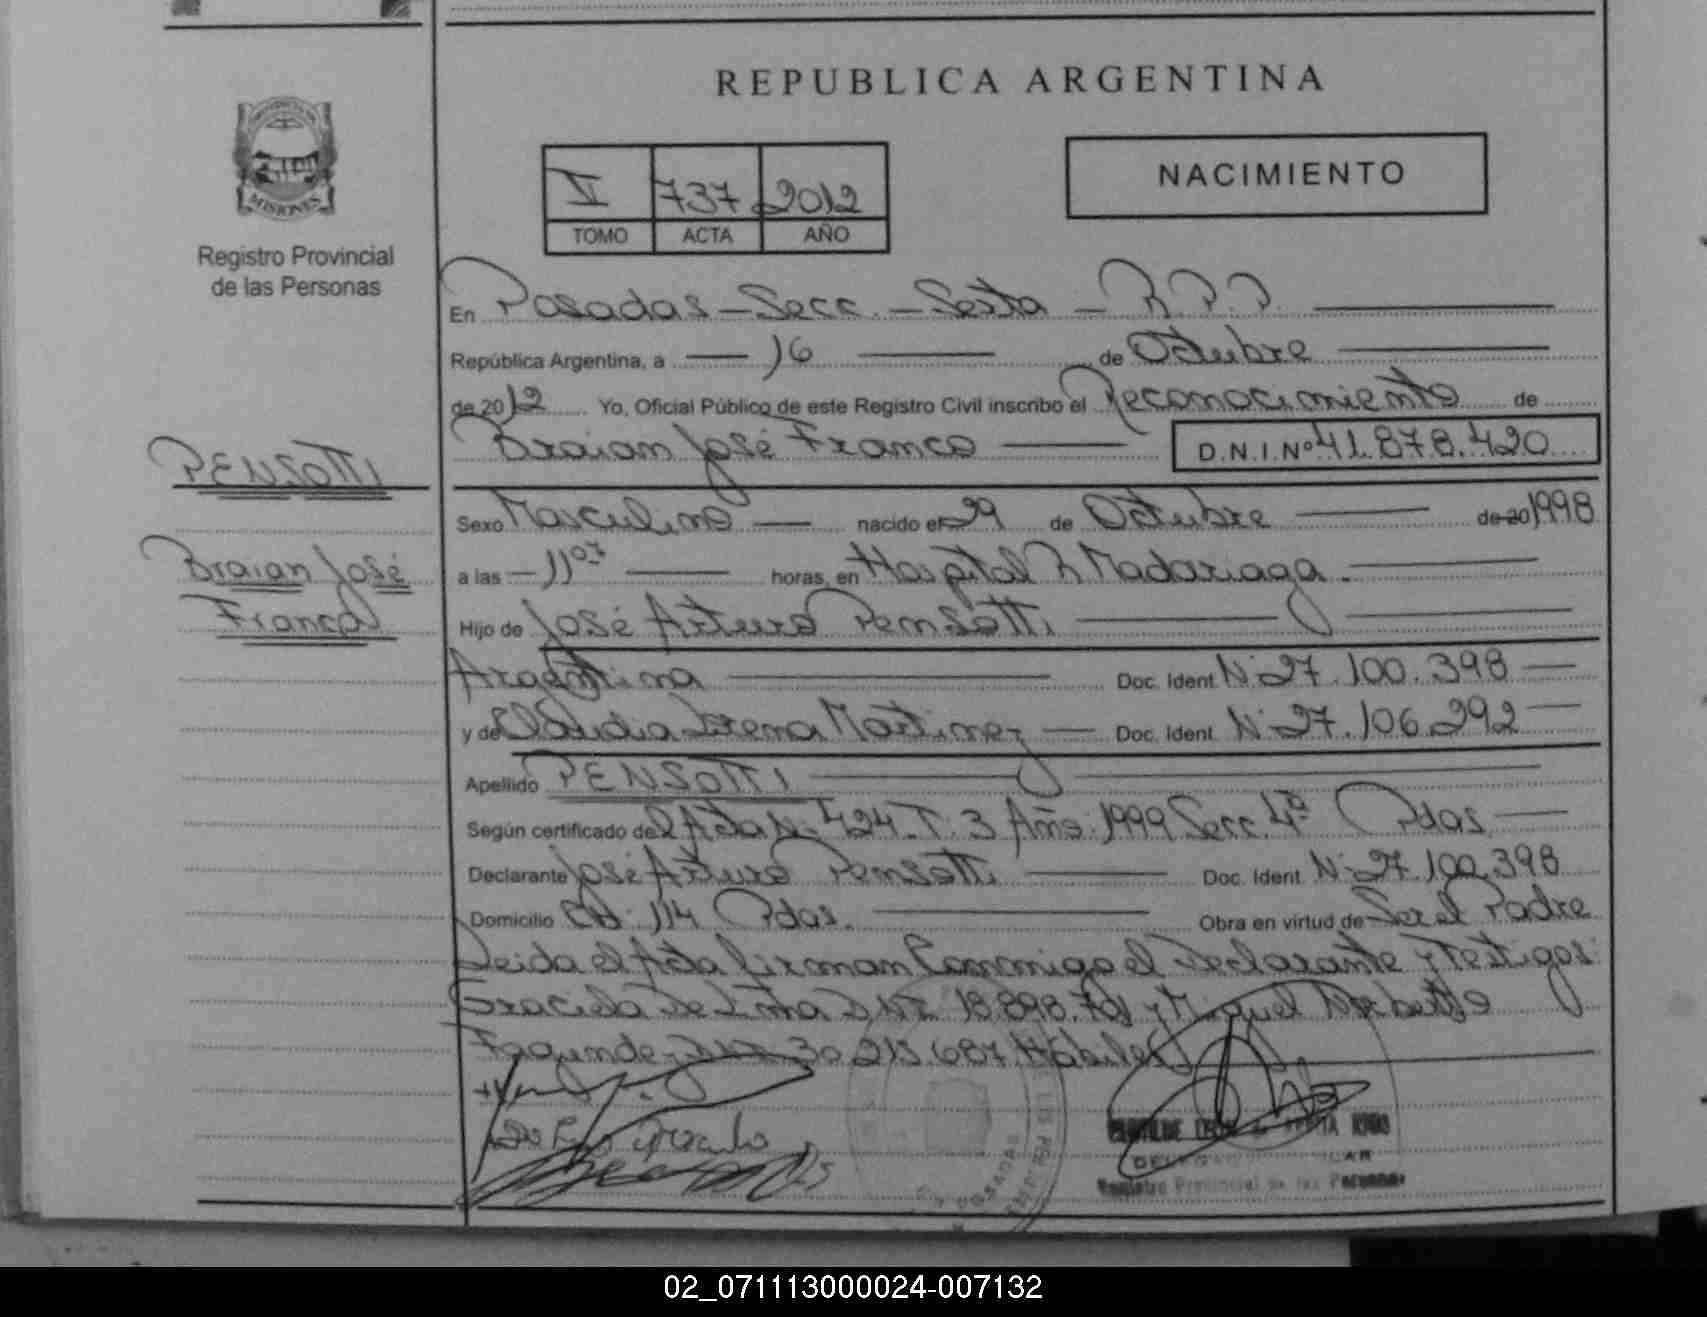 REPUBLICA ARGENTINA
NACIMIENTO
737 2012
TOMO ACTA AÑO
MISIONES
Registro Provincial
de las Personas
En Posadas - Secc. - Sexta - R.P.P.
República Argentina, a 16 de Octubre
de 2012 Yo, Oficial Público de este Registro Civil inscribo el Reconocimiento de
Braian José Franco D.N.I. Nº 41.878.420
PENSOTTI
Braian José
Franco
Sexo Masculino nacido el 29 de Octubre de 20 1998
a las 11 07 horas, en Hospital R Madariaga.
Hijo de José Arturo Pensotti
Argentina Doc. Ident. Nº 27.100.398
y de Claudia Lorena Martinez Doc. Ident. Nº 27.106.292
Apellido PENSOTTI
Según certificado de Acta Nº 424 T. 3 Año 1999 Secc. 4ª Pdas
Declarante José Arturo Pensotti Doc. Ident. Nº 27.100.398
Domicilio Ch. 114 Pdas. Obra en virtud de Ser el Padre
Leida el Acta firman Conmigo el Declarante y Testigos:
Graciela De Lima DNI 18.898. y Miguel Norberto
Fagundez DNI 30.213.687 Hábiles
Registro Provincial de las Personas
02_071113000024-007132